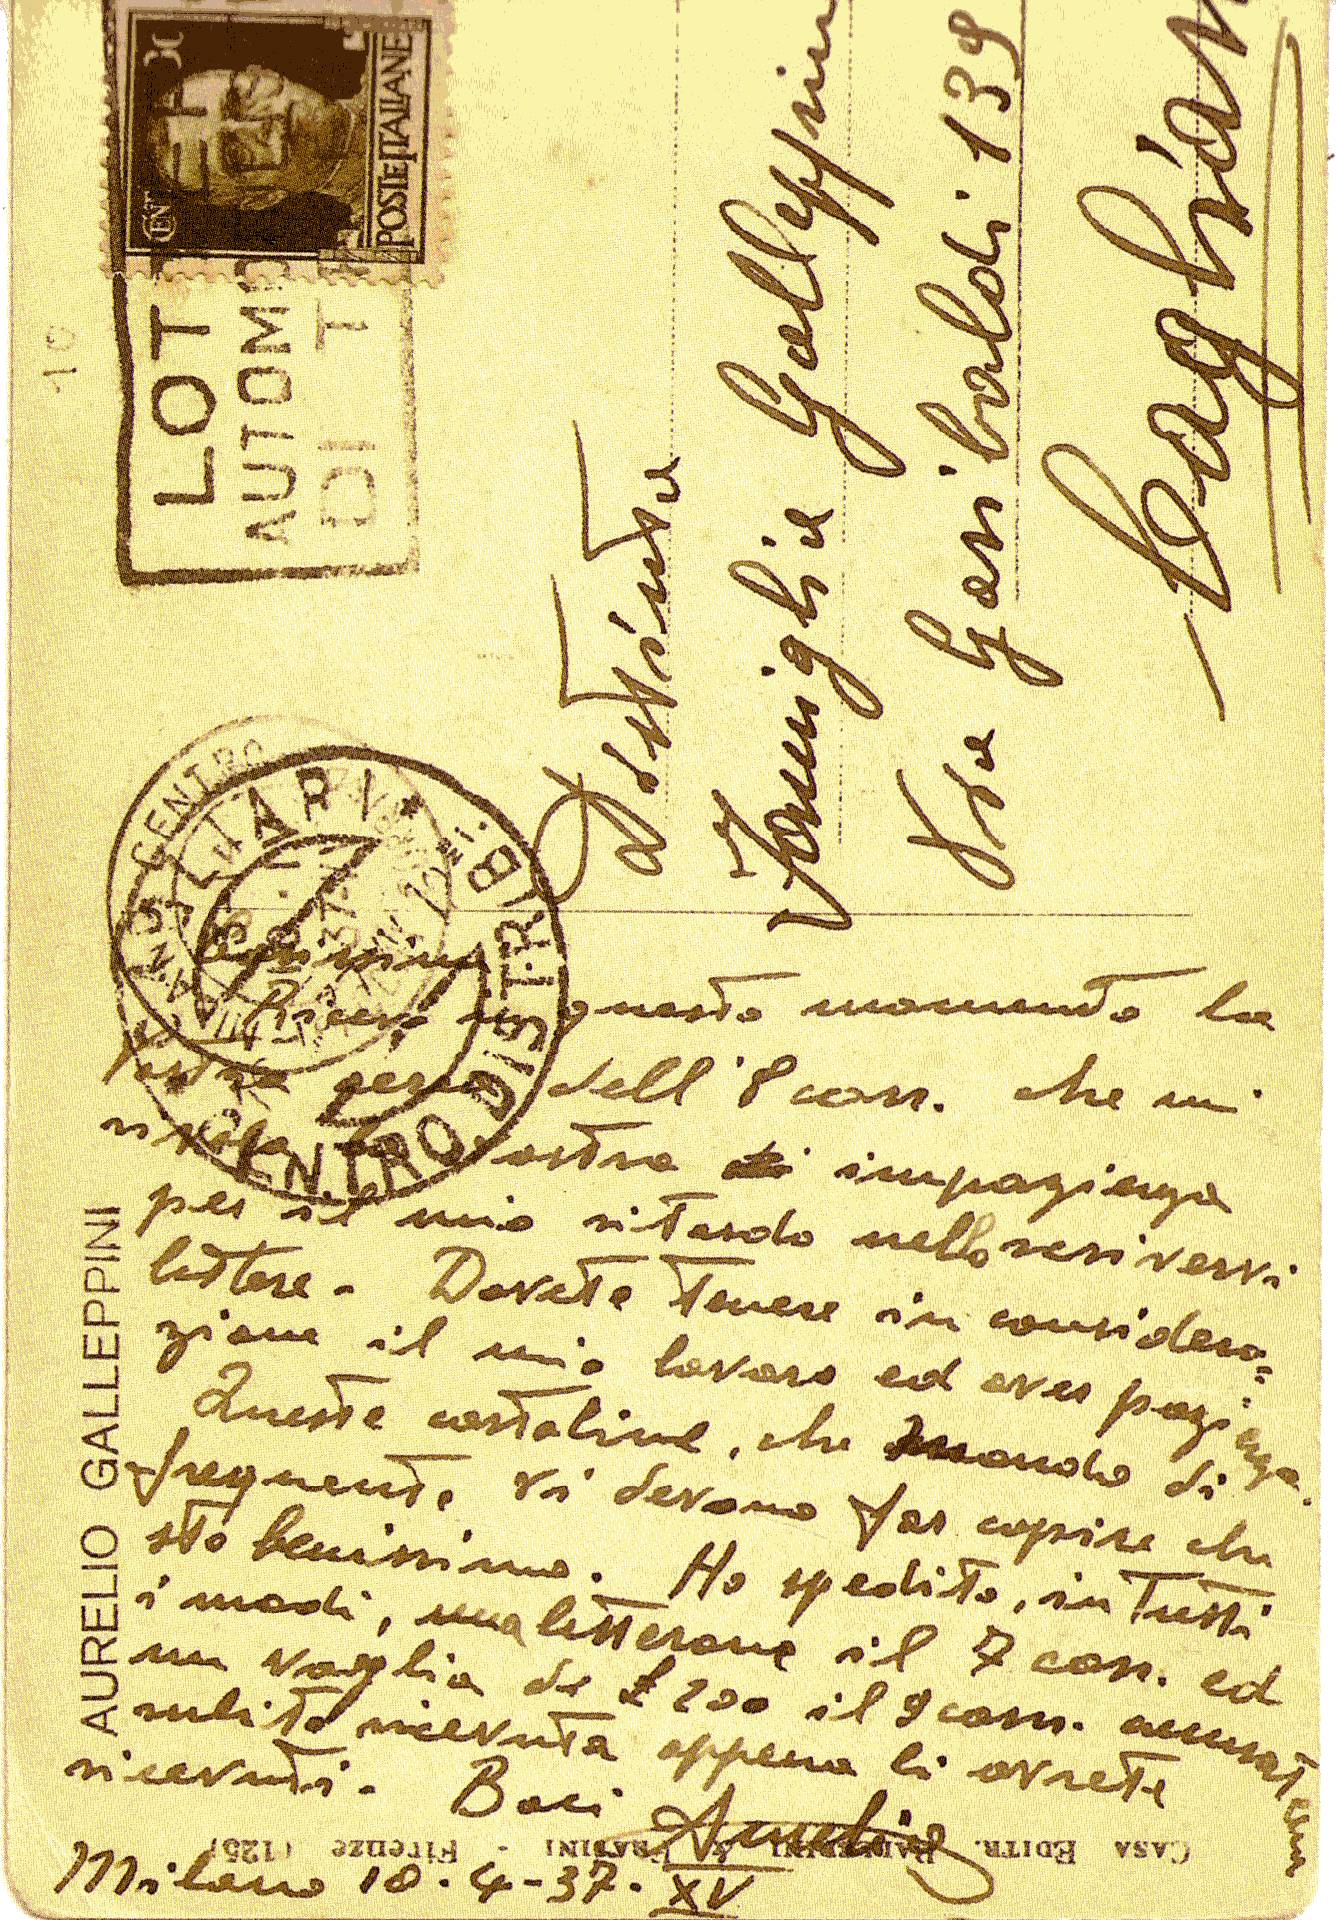 10
CENT 30
POSTE ITALIANE
LOT
AUTOMO
DI T
MILANO CENTRO
CAGLIARI
CENTRO DISTRIB.
Distinta
Famiglia Galleppini
Via Garibaldi 139
Cagliari
AURELIO GALLEPPINI
Carissimi
Ricevo in questo momento la
dell'8 corr. che mi
vostra impazienza
per il mio ritardo nello scrivervi
lettere. Dovete tenere in considera=
zione il mio lavoro ed aver pazienza.
Queste cartoline, che mando di
frequente, vi devono far capire che
sto benissimo. Ho spedito, in tutti
i modi, una letterona il 7 corr. ed
un vaglia di £ 200 il 9 corr. accusatemi
subito ricevuta appena li avrete
ricevuti. Baci Aurelio
Milano 10-4-37-XV
CASA EDITR. BALLERINI & FRATINI - FIRENZE (125)